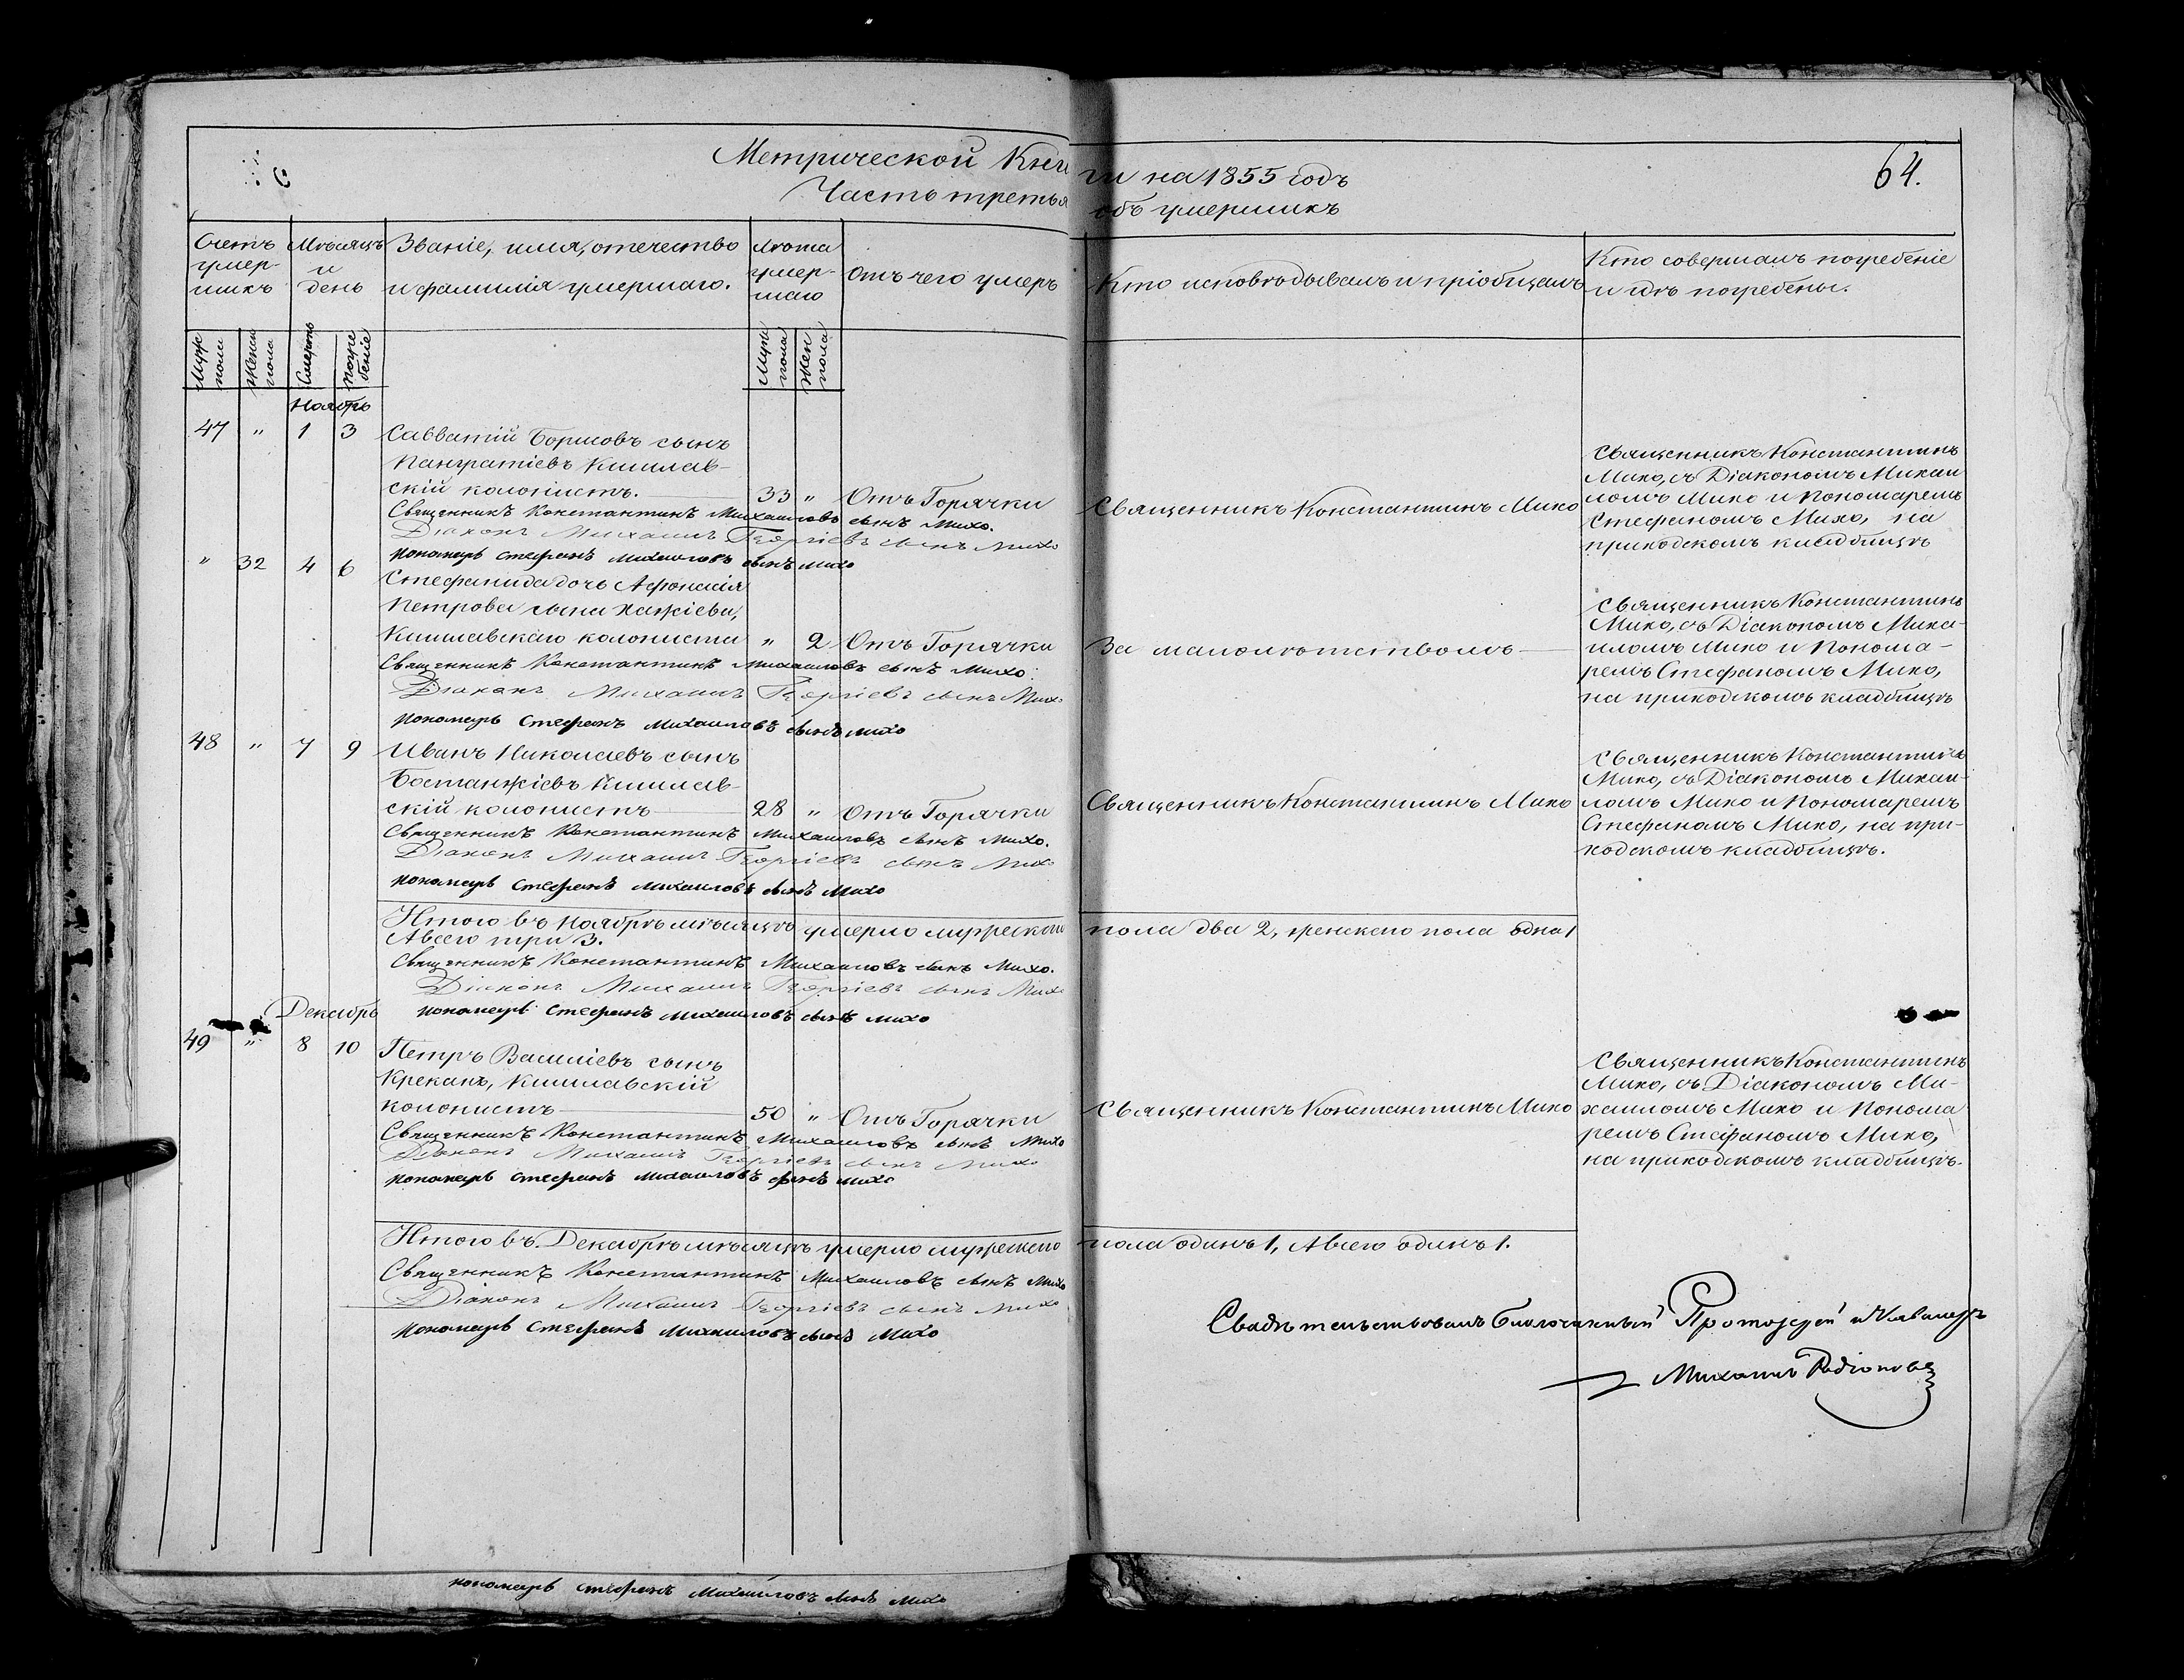 Метрической Книги на 1855 годъ
64.
Часть третья объ умершихъ
Счетъ умер-шихъ
Мѣсяцъ и день
Званіе, имя, отечество
и фамилія умершаго.
Лѣта умер-шаго
Отъ чего умеръ
Кто исповѣдывалъ и пріобщалъ
Кто совершалъ погребеніе
и гдѣ погребены.
Муж пола
Женс пола
Смерть
Погребеніе
Муж пола
Жен пола
Ноябрь
47 " 1 3 Савватій Борисовъ сынъ
Панкратіевъ Кишлав-
скій колонистъ. 33 " Отъ Горячки
Священникъ Константинъ Михо
Священникъ Константинъ
Михо, съ Діакономъ Михаи
ломъ Михо и Пономаремъ
Стефаномъ Михо, на
приходскомъ кладбищѣ
Священникъ Константинъ Михаиловъ сынъ Михо.
Діаконъ Михаилъ Георгіевъ сынъ Михо
Пономарь Стефанъ Михаиловъ сынъ Михо
" 32 4 6 Стефанида дочь Афонасія
Петрова сына Хажіева,
Кишлавскаго колониста " 2 Отъ Горячки
За малолѣтствомъ
Священникъ Константинъ
Михо, съ Діакономъ Миха-
иломъ Михо и Понома-
ремъ Стефаномъ Михо,
на приходскомъ кладбищѣ
Священникъ Константинъ Михаиловъ сынъ Михо.
Діаконъ Михаилъ Георгіевъ сынъ Михо
Пономарь Стефанъ Михаиловъ сынъ Михо
48 " 7 9 Иванъ Николаевъ сынъ
Бостанжіевъ Кишлав-
скій колонистъ 28 " Отъ Горячки
Священникъ Константинъ Михо
Священникъ Константинъ
Михо, съ Діакономъ Михаи-
ломъ Михо и Пономаремъ
Стефаномъ Михо, на при-
ходскомъ кладбищѣ.
Священникъ Константинъ Михаиловъ сынъ Михо.
Діаконъ Михаилъ Георгіевъ сынъ Михо
Пономарь Стефанъ Михаиловъ сынъ Михо
Итого въ Ноябрѣ мѣсяцѣ умерло мужескаго пола два 2, женскаго пола одна 1
А всего три 3.
Священникъ Константинъ Михаиловъ сынъ Михо.
Діаконъ Михаилъ Георгіевъ сынъ Михо
Пономарь Стефанъ Михаиловъ сынъ Михо
Декабрь
49 " 8 10 Петръ Василіевъ сынъ
Креканъ, Кишлавскій
колонистъ 50 " Отъ Горячки
Священникъ Константинъ Михо
Священникъ Константинъ
Михо, съ Діакономъ Ми-
хаиломъ Михо и Понома
ремъ Стефаномъ Михо,
на приходскомъ кладбищѣ.
Священникъ Константинъ Михаиловъ сынъ Михо
Діаконъ Михаилъ Георгіевъ сынъ Михо
Пономарь Стефанъ Михаиловъ сынъ Михо
Итого въ Декабрѣ мѣсяцѣ умерло мужескаго пола одинъ 1, А всего одинъ 1.
Священникъ Константинъ Михаиловъ сынъ Михо
Діаконъ Михаилъ Георгіевъ сынъ Михо
Пономарь Стефанъ Михаиловъ сынъ Михо
Свидѣтельствовалъ благочинный Протоіерей и Кавалеръ
Михаилъ Родіоновъ
Пономарь Стефанъ Михаиловъ сынъ Михо